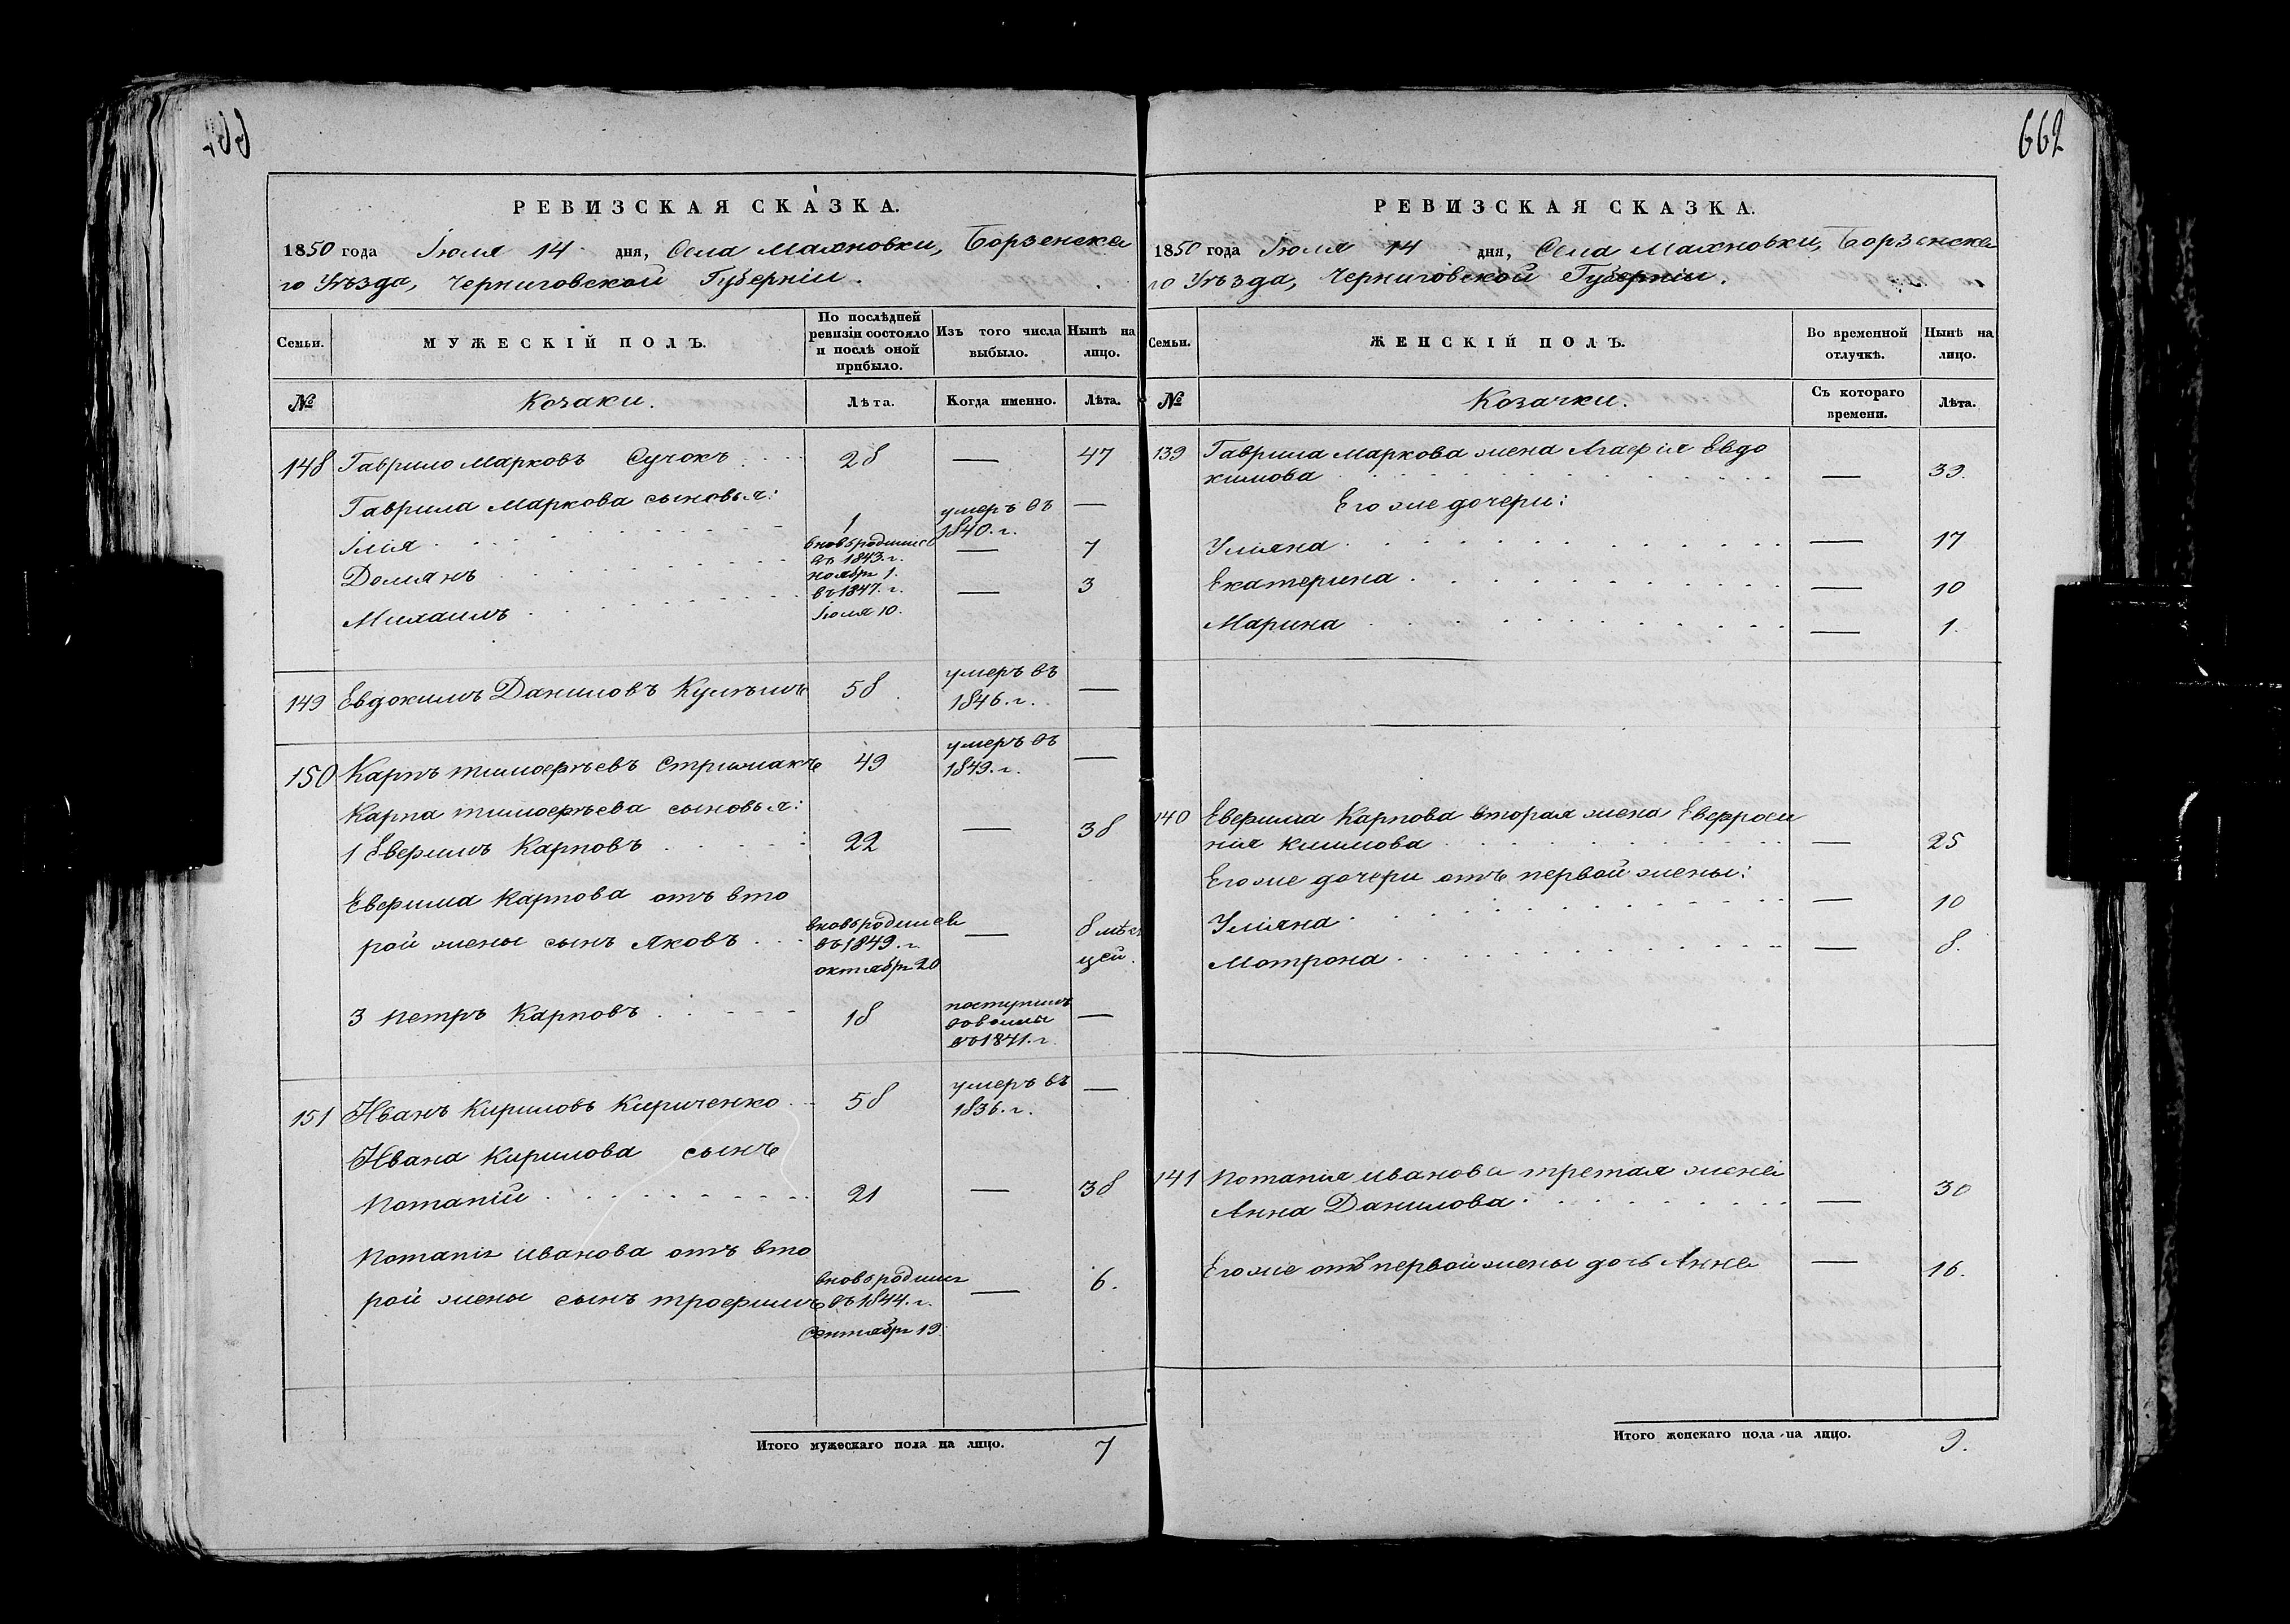 662
РЕВИЗСКАЯ СКАЗКА.
1850 года Іюля 14 дня, Села Махновки, Борзенска
го Уѣзда, Черниговской Губерніи.
Семьи.
МУЖЕСКІЙ ПОЛЪ.
По послѣдней
ревизіи состояло
и послѣ оной
прибыло.
Изъ того числа
выбыло.
Нынѣ на
лицо.
№
Козаки.
Лѣта.
Когда именно.
Лѣта.
148 Гаврило Марковъ Сучокъ 28 — 47
Гаврила Маркова сыновья:
Ілія 1 умеръ въ 1840. г. —
Домянъ вновь родился въ 1843. г. ноября 1. — 7
Михаилъ въ 1847. г. Іюля 10. — 3
149 Евдокимъ Даниловъ Кулѣшъ 58 умеръ въ 1846. г. —
150 Карпъ Тимофѣевъ Стрижакъ 49 умеръ въ 1849. г. —
Карпа Тимофѣева сыновья:
1 Евфимъ Карповъ 22 — 38
Евфима Карпова отъ вто
рой жены сынъ Яковъ вновь родился въ 1849. г. октября 20 — 8 мѣся
цей.
3 Петръ Карповъ 18 поступилъ
въ 1841. г. —
151 Иванъ Кириловъ Кириченко 58 умеръ въ 1836. г. —
Ивана Кирилова сынъ
Потапій 21 — 38
Потапія Иванова отъ вто
рой жены сынъ Трофимъ вновь родился въ 1844. г. Сентября 19. — 6.
Итого мужескаго пола на лицо. 7
662
РЕВИЗСКАЯ СКАЗКА.
1850 года Іюля 14 дня, Села Махновки, Борзенска
го Уѣзда, Черниговской Губерніи.
Семьи.
ЖЕНСКІЙ ПОЛЪ.
Во временной
отлучкѣ.
Нынѣ на
лицо.
№
Козачки.
Съ котораго
времени.
Лѣта.
139 Гаврила Маркова жена Агафія Евдо
кимова — 39.
Его же дочери:
Уліяна — 17
Екатерина — 10
Марина — 1.
140 Евфима Карпова вторая жена Евфроси
нія Климова — 25
Его же дочери отъ первой жены:
Уліяна — 10
Мотрона — 8.
141 Потапія Иванова третая жена
Анна Данилова — 30
Его же отъ первой жены дочь Анна — 16.
Итого женскаго пола на лицо. 9.